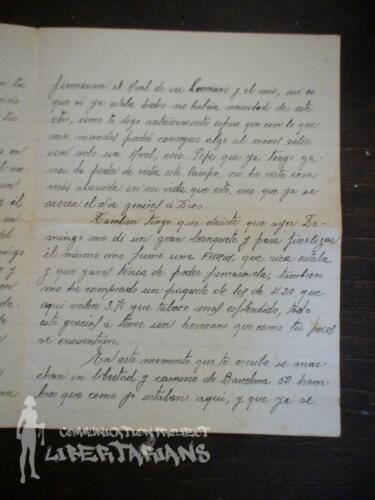 firmaran el Aval de su hermano y el mio, asi es
que si ya estaba hecho no habia necesidad de este
otro, como te digo anteriormente espero que con lo que
me mandas podré conseguir algo al menos salir
con solo un Aval, creo Pepe que ya tengo ga-
nas de perder de vista este Campo, no ho visto cosa
más aburrida en mi vida que esto, creo que ya se
acerca el dia gracias á Dios.
Tambien tengo que decirte que ayer Do-
mingo me di un gran banquete y para finalizar
el mismo me fumé una FARIA que rica estaba
y que ganas tenia de poder fumarmela, tambien
me he comprado un paquete de los de 4'20 que
aqui valen 3'70 que tabaco mas esplendido, todo
esto gracias á tener un hermano que como tu pocos
se encuentran.
En este momento que te escribo se mar-
chan en libertad y camino de Barcelona 50 hom-
bres que como yo estaban aqui, y que ya se
COMMUNICATION PROJECT
LIBERTARIANS